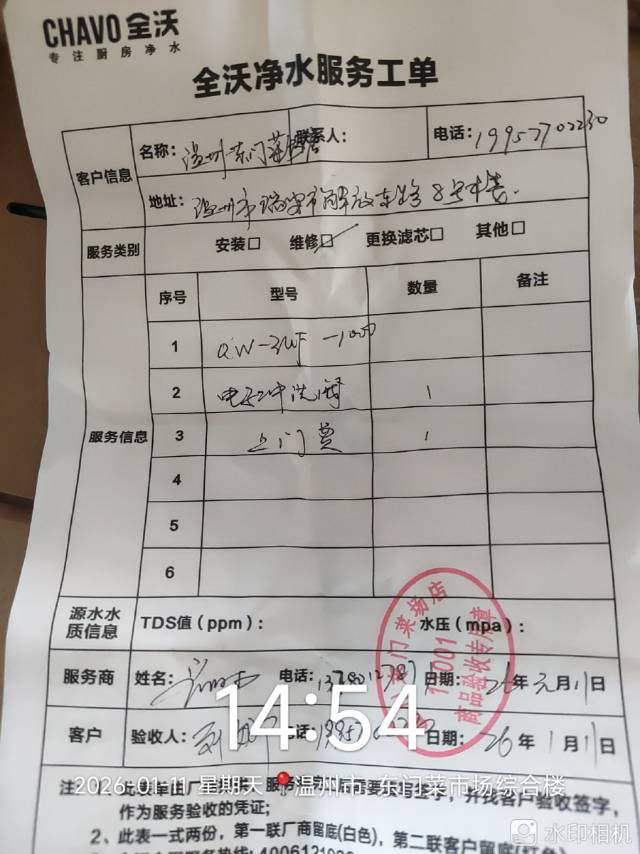 CHAVO 全沃
专注厨房净水
全沃净水服务工单
客户信息
名称：温州东门菜场店 联系人： 电话：19957702230
地址：温州市瑞安市解放东路8号
服务类别 安装□ 维修☑ 更换滤芯□ 其他□
服务信息
序号 型号 数量 备注
1 QW-3WF-1000
2 电子冲洗阀 1
3 上门费 1
4
5
6
源水水质信息 TDS值（ppm）： 水压（mpa）：
东门菜场店
商品验收专用章
服务商 姓名： 电话： 日期：26年元月11日
14:54
客户 验收人： 电话： 日期：26年1月11日
2026-01-11 星期天 温州市·东门菜市场综合楼
作为服务验收的凭证；
2、此表一式两份，第一联厂商留底(白色)，第二联客户留底
水印相机